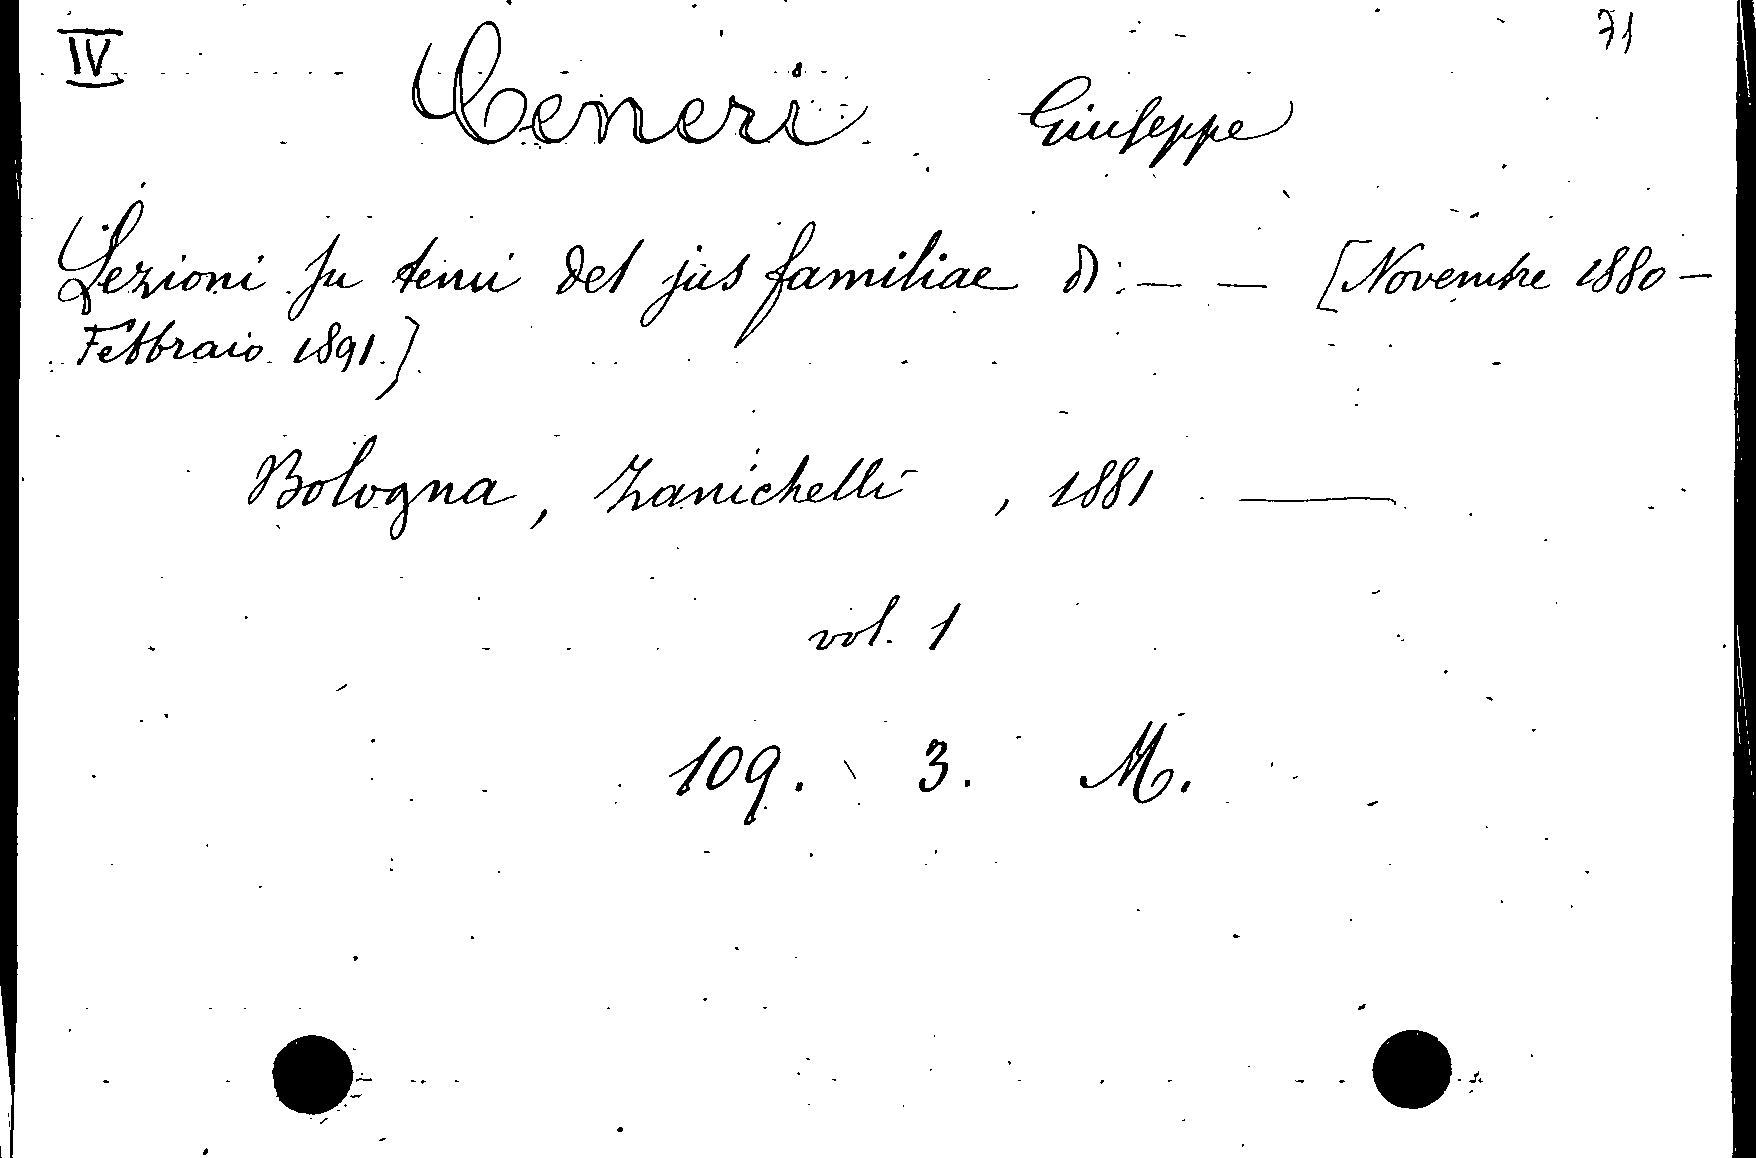 IV 71
Ceneri Giuseppe
Lezioni su temi del jus familiae di — — [Novembre 1880 –
Febbraio 1891.]
Bologna, Zanichelli, 1881 —
vol. 1
109. 3. M.